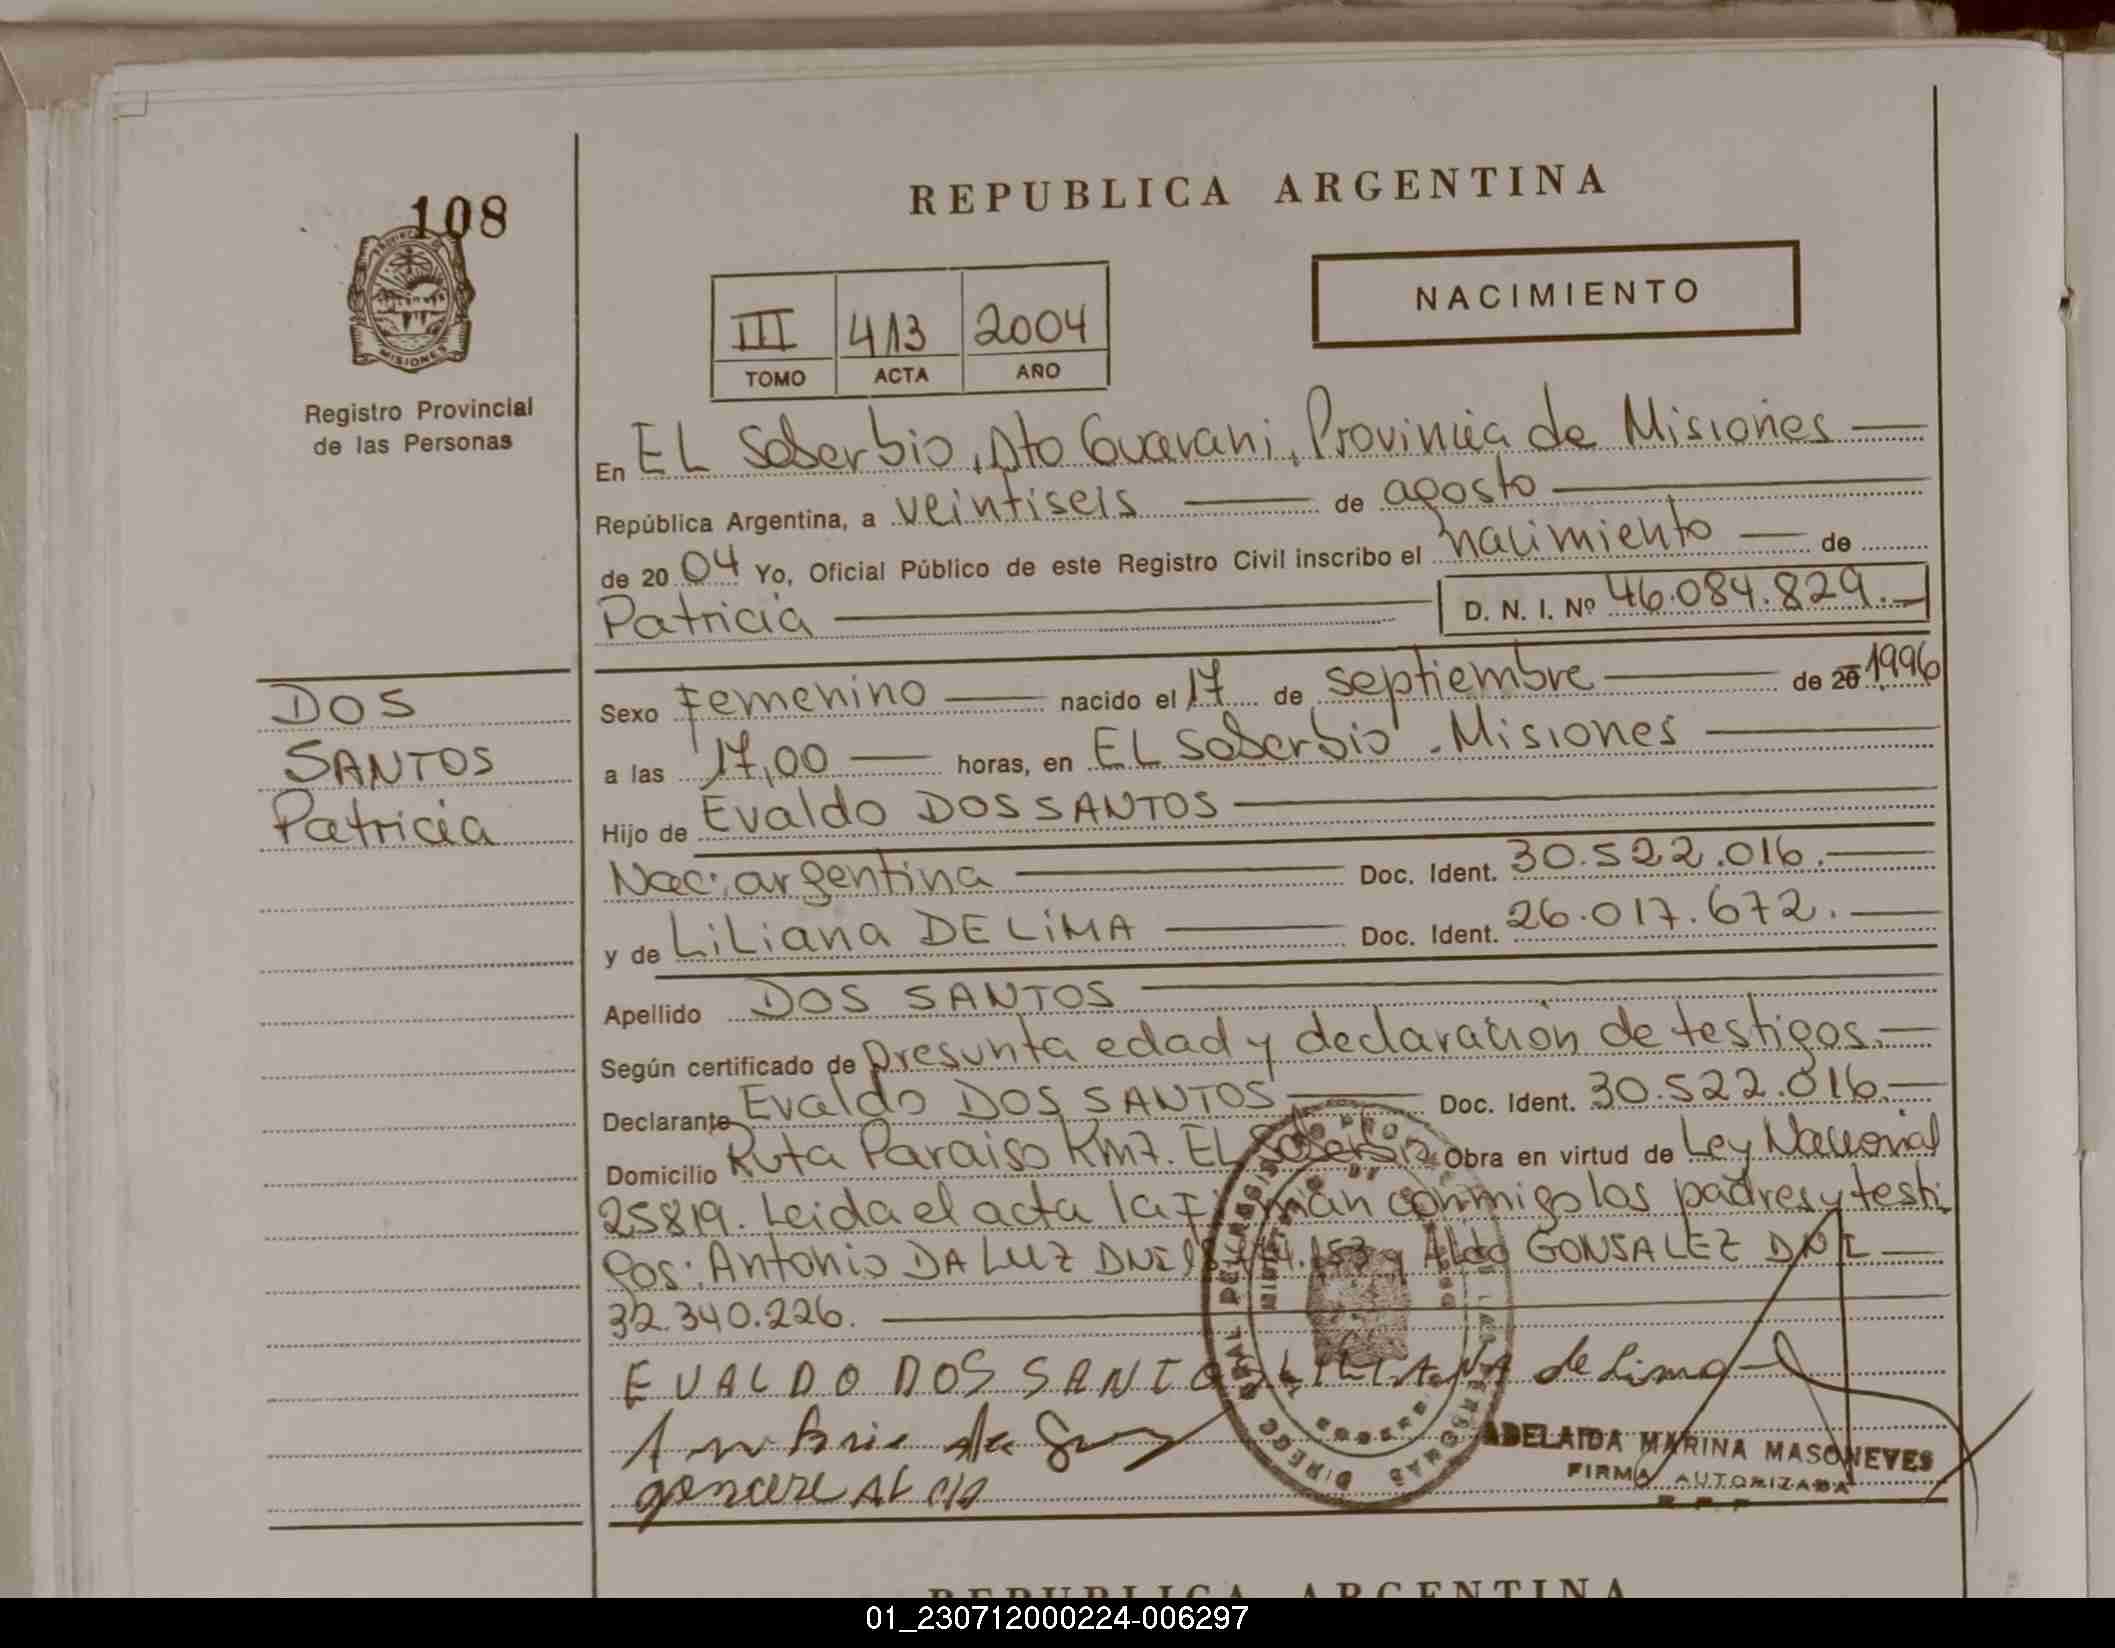 108
PROVINCIA DE
MISIONES
Registro Provincial
de las Personas
REPUBLICA ARGENTINA
NACIMIENTO
III 413 2004
TOMO ACTA AÑO
En EL Soberbio, Dto Guarani, Provincia de Misiones
República Argentina, a veintiseis de agosto
de 2004 Yo, Oficial Público de este Registro Civil inscribo el nacimiento de
Patricia D. N. I. Nº 46.084.829.
DOS
SANTOS
Patricia
Sexo Femenino nacido el 17 de septiembre de 20 1996
a las 17,00 horas, en EL Soberbio - Misiones
Hijo de Evaldo DOS SANTOS
Nac: argentina Doc. Ident. 30.522.016.
y de LiLiana DE LiMA Doc. Ident. 26.017.672.
Apellido DOS SANTOS
Según certificado de presunta edad y declaración de testigos.
Declarante Evaldo DOS SANTOS Doc. Ident. 30.522.016.
Domicilio Ruta Paraiso Km7. EL Soberbio Obra en virtud de Ley Nacional
25819. Leida el acta la firman conmigo los padres y testi
gos: Antonio DA LUZ DNI y Aldo GONSALEZ DNI
32.340.226.
EVALDO DOS SANTOS LILIANA de Lima
ADELAIDA MARINA MASONEVES
FIRMA AUTORIZADA
R.P.P
REPUBLICA ARGENTINA
01_230712000224-006297